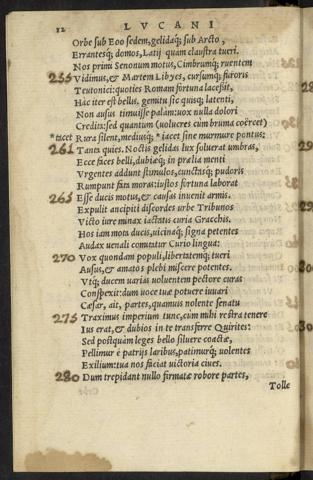 12 LVCANI
Orbe sub Eoo sedem, gelidaq; sub Arcto,
Errantesq; domos, Latij quam claustra tueri.
Nos primi Senonum motus, Cimbrumq; ruentem
255 Vidimus, & Martem Libyes, cursumq; furoris
Teutonici: quoties Romam fortuna lacessit,
Hac iter est bellis. gemitu sic quisq; latenti,
Non ausus timuisse palam: uox nulla dolori
Credita: sed quantum (uolucres cùm bruma coërcet)
*tacet Rura silent, mediusq; *iacet sine murmure pontus:
261 Tanta quies. Noctis gelidas lux soluerat umbras,
Ecce faces belli, dubiæq; in prælia menti
Vrgentes addunt stimulos, cunctasq; pudoris
Rumpunt fata moras: iustos fortuna laborat
265 Esse ducis motus, & causas inuenit armis.
Expulit ancipiti discordes urbe Tribunos
Victo iure minax iactatis curia Gracchis.
Hos iam mota ducis, uicinaq; signa petentes
Audax uenali comitatur Curio lingua:
270 Vox quondam populi, libertatemq; tueri
Ausus, & armatos plebi miscere potentes.
Vtq; ducem uarias uoluentem pectore curas
Conspexit: dum uoce tuæ potuere iuuari
Cæsar, ait, partes, quamuis nolente senatu
275 Traximus imperium tunc, cùm mihi rostra tenere
Ius erat, & dubios in te transferre Quirites:
Sed postquàm leges bello siluere coactæ,
Pellimur è patrijs laribus, patimurq; uolentes
Exilium: tua nos faciat victoria ciues.
280 Dum trepidant nullo firmatæ robore partes,
Tolle